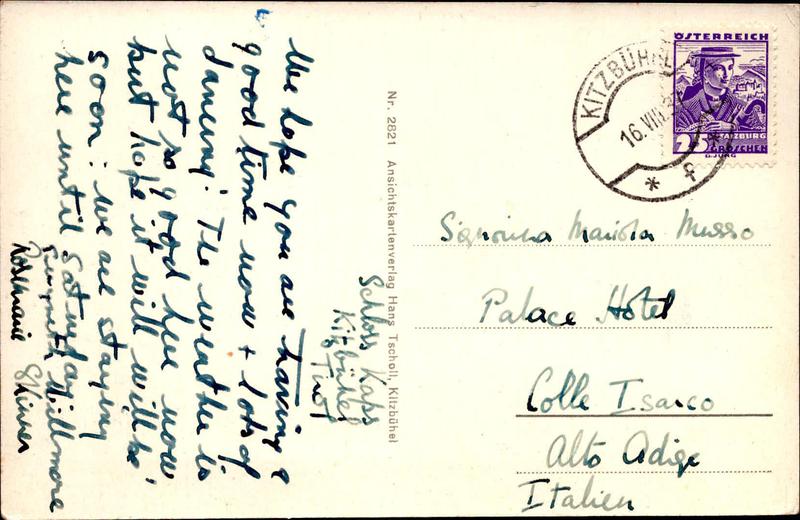 We hope you are having a
good time now + lots of
dancing. The weather is
not so good here now
but hope it will will be
soon: we are staying
here until Saturday.
Gwyneth Willmore
Rosemarie Skinner
Schloss Kaps
Kitzbühel
Tirol
Nr. 2821 Ansichtskartenverlag Hans Tscholl, Kitzbühel
KITZBÜHEL
16.VIII.
* f *
ÖSTERREICH
SALZBURG
25 GROSCHEN
G. JUNG
Signorina Mariola Musso
Palace Hotel
Colle Isarco
Alto Adige
Italien